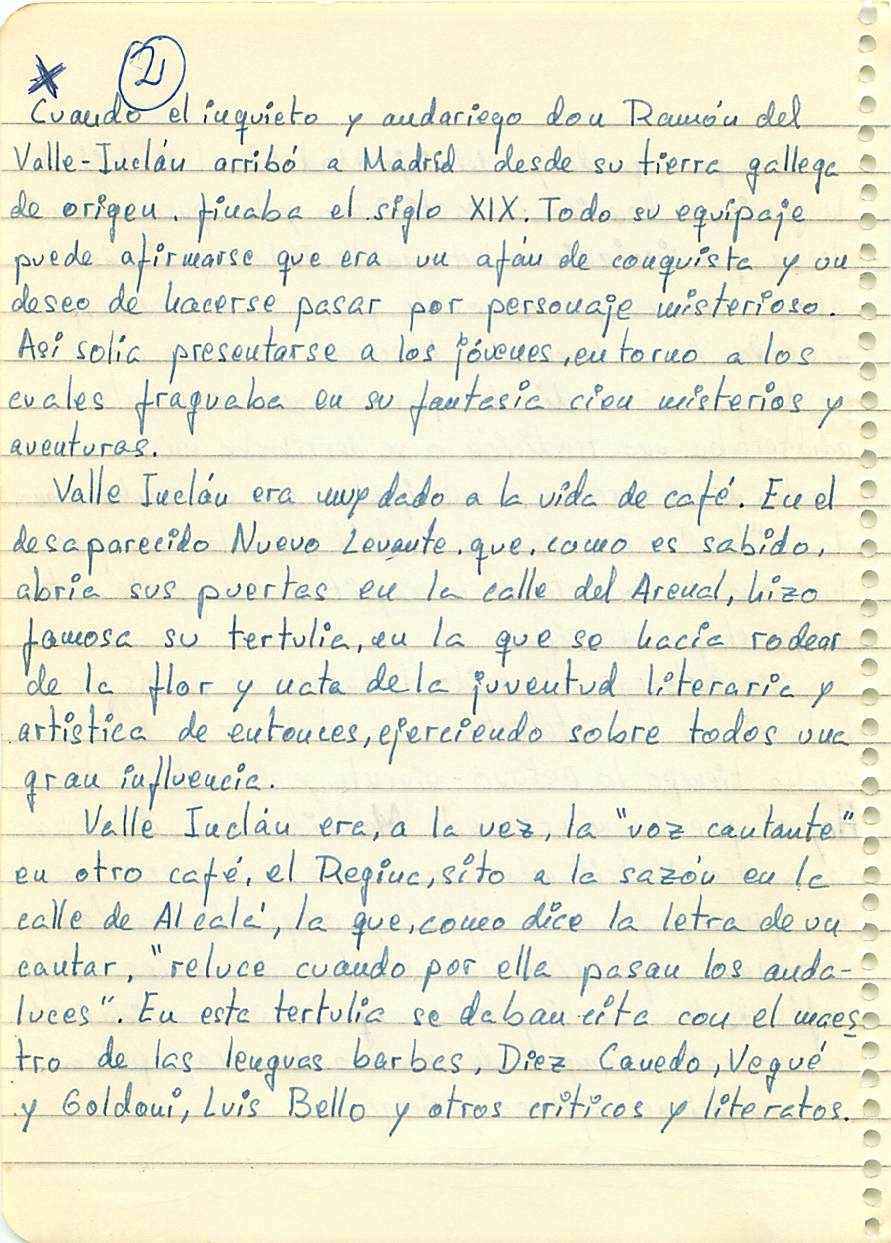 * 2
Cuando el inquieto y andariego don Ramón del
Valle-Inclán arribó a Madrid desde su tierra gallega
de origen, finaba el siglo XIX. Todo su equipaje
puede afirmarse que era un afán de conquista y un
deseo de hacerse pasar por personaje misterioso.
Asi solía presentarse a los jóvenes, en torno a los
cuales fraguaba en su fantasia cien misterios y
aventuras.
Valle Inclán era muy dado a la vida de café. En el
desaparecido Nuevo Levante, que, como es sabido,
abria sus puertas en la calle del Arenal, hizo
famosa su tertulia, en la que se hacia rodear
de la flor y nata de la juventud literaria y
artistica de entonces, ejerciendo sobre todos una
gran influencia.
Valle Inclán era, a la vez, la "voz cantante"
en otro café, el Regina, sito a la sazón en la
calle de Alcalá, la que, como dice la letra de un
cantar, "reluce cuando por ella pasan los anda-
luces". En esta tertulia se daban cita con el maes
tro de las lenguas barbas, Diez Canedo, Vegué
y Goldoni, Luis Bello y otros criticos y literatos.